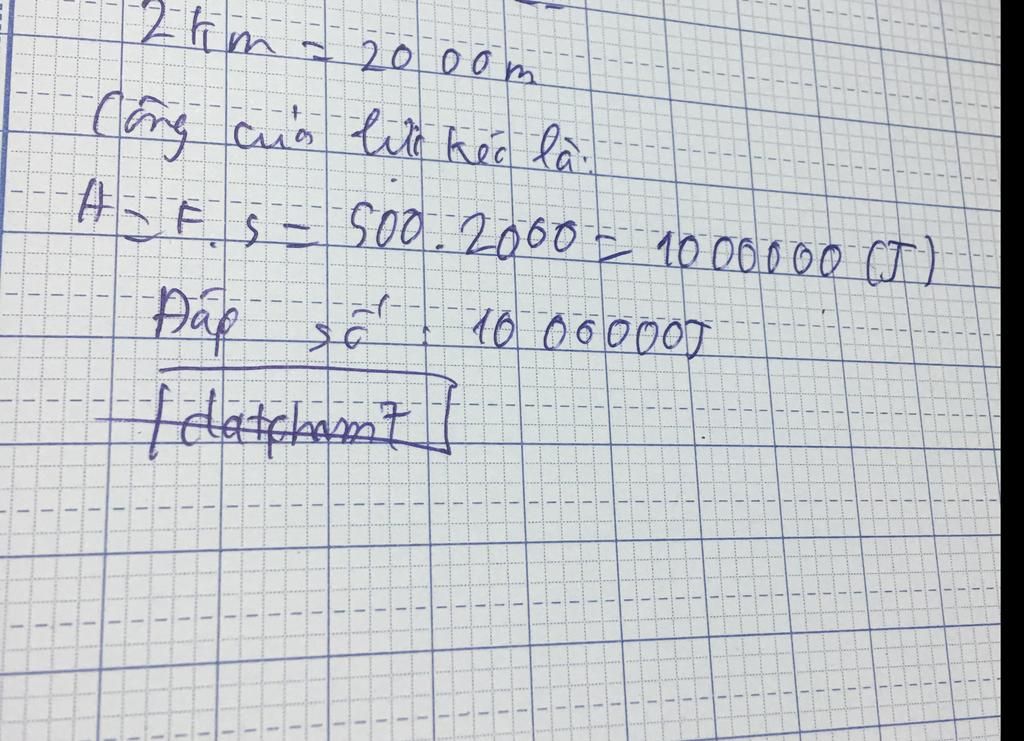 2km = 2000m
Công của lực kéo là:
A = F. s = 500. 2000 = 1000000 (J)
Đáp số : 1000000J
datcham7